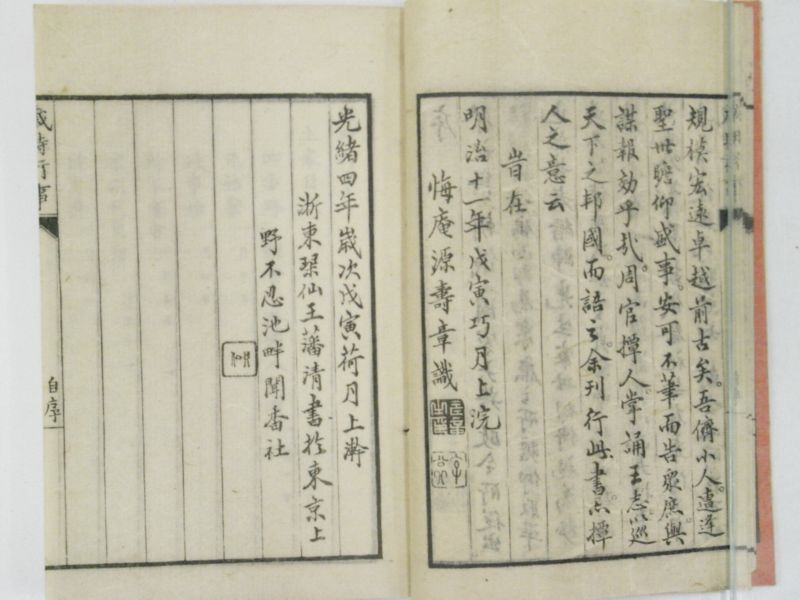 規模宏遠卓越前古矣。吾儕小人。遭逢
聖世。瞻仰盛事。安可不筆而告衆庶。與
謀報効乎哉。周官撢人。掌誦王志。以巡
天下之邦國。而語之。余刊行此書。亦撢
人之意云
旹在
明治十一年戊寅巧月上浣
悔庵源壽章識
光緒四年歲次戊寅荷月上澣
浙東琹仙王藩清書於東京上
野不忍池畔聞香社
歲時行事
自序